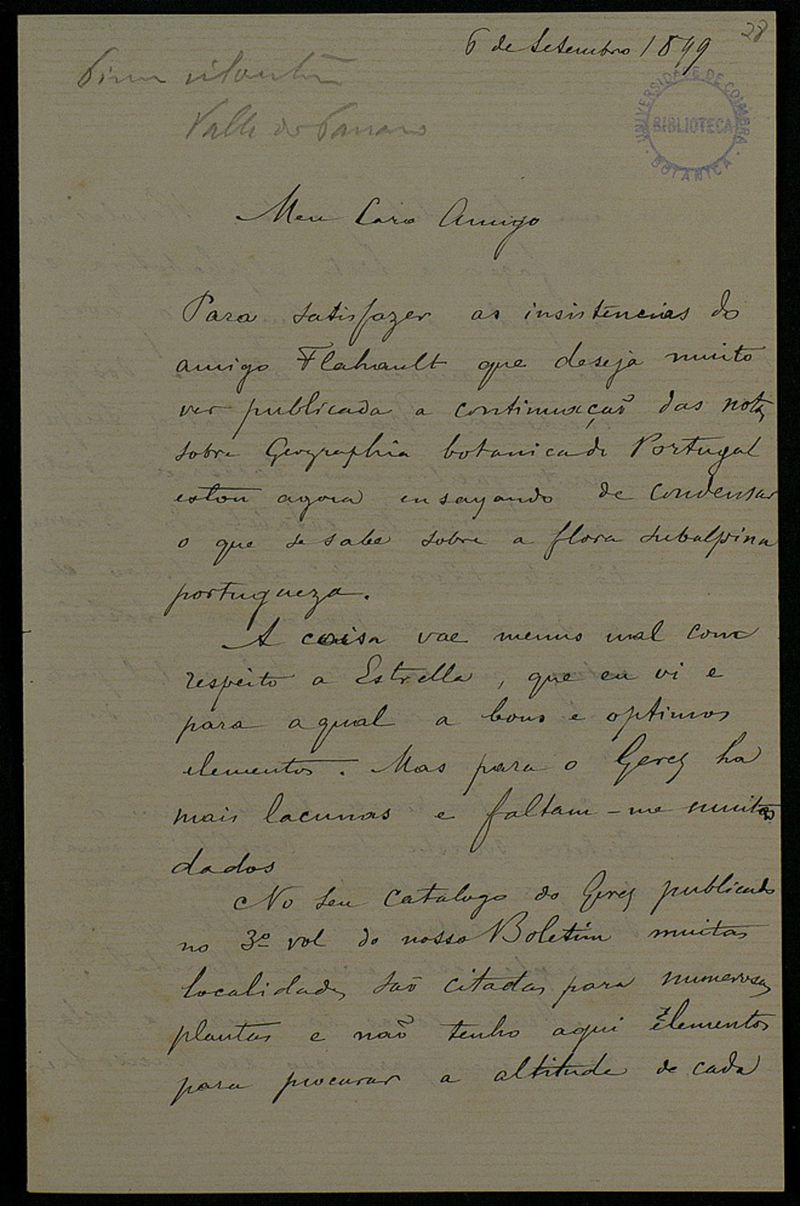 28
6 de Setembro 1899
UNIVERSIDADE DE COIMBRA
BIBLIOTECA
BOTANICA
Valle do
Meu Caro Amigo
Para satisfazer as insistencias do
amigo Flahault que deseja muito
ver publicada a continuação das notas
sobre Geographia botanica de Portugal
estou agora ensayando de condensar
o que se sabe sobre a flora subalpina
portugueza.
A coisa vae menus mal com
respeito a Estrella, que eu vi e
para a qual a bons e optimos
elementos. Mas para o Gerez ha
mais lacunas e faltam-me muitos
dados
No seu Catalogo do Gerez publicado
no 3º vol do nosso Boletim muitas
localidades são citadas para numerosas
plantas e não tenho aqui elementos
para procurar a altitude de cada